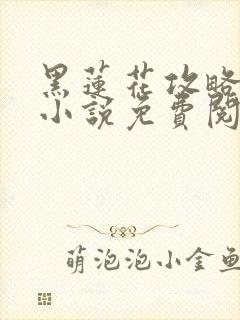 黑蓮花攻略
小說免費閱
萌泡泡小金魚